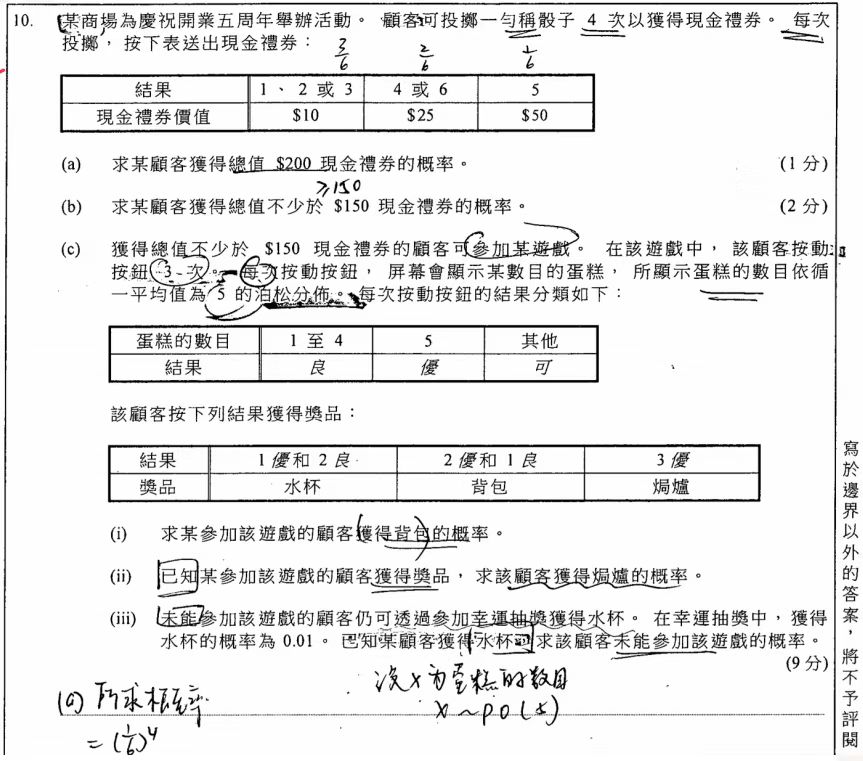 10. 某商場為慶祝開業五周年舉辦活動。 顧客可投擲一勻稱骰子 4 次以獲得現金禮券。 每次
投擲, 按下表送出現金禮券:
3/6 2/6 1/6
結果 1、2 或 3 4 或 6 5
現金禮券價值 $10 $25 $50
(a) 求某顧客獲得總值 $200 現金禮券的概率。 (1 分)
≥150
(b) 求某顧客獲得總值不少於 $150 現金禮券的概率。 (2 分)
(c) 獲得總值不少於 $150 現金禮券的顧客可參加某遊戲。 在該遊戲中, 該顧客按動
按鈕 3 次。 每次按動按鈕, 屏幕會顯示某數目的蛋糕, 所顯示蛋糕的數目依循
一平均值為 5 的泊松分佈。 每次按動按鈕的結果分類如下:
蛋糕的數目 1 至 4 5 其他
結果 良 優 可
該顧客按下列結果獲得獎品:
結果 1 優和 2 良 2 優和 1 良 3 優
獎品 水杯 背包 焗爐
(i) 求某參加該遊戲的顧客獲得背包的概率。
(ii) 已知某參加該遊戲的顧客獲得獎品, 求該顧客獲得焗爐的概率。
(iii) 未能參加該遊戲的顧客仍可透過參加幸運抽獎獲得水杯。 在幸運抽獎中, 獲得
水杯的概率為 0.01。 已知某顧客獲得水杯, 求該顧客未能參加該遊戲的概率。
(9 分)
設 x 為蛋糕的數目
x ~ PO(5)
(a) 所求概率
= (1/6)^4
寫於邊界以外的答案,將不予評閱